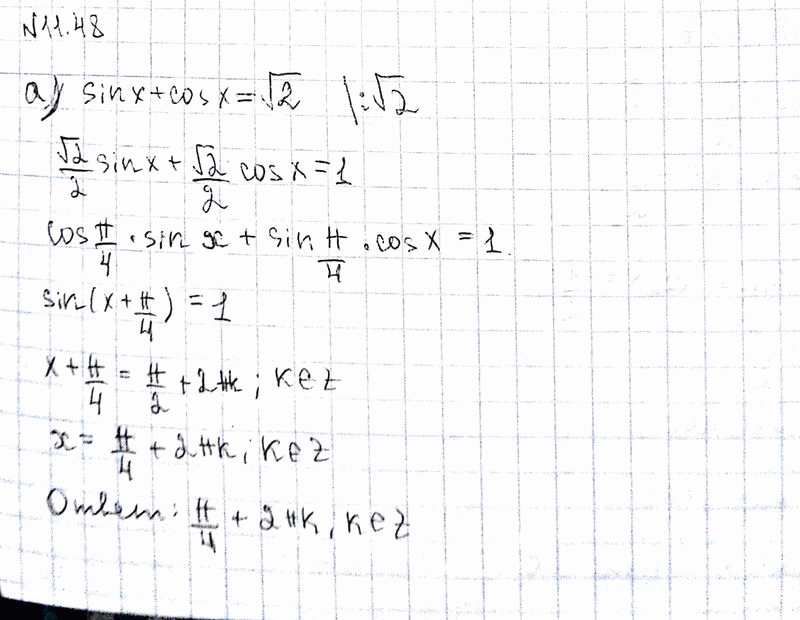 №11.48
а) sinx+cosx=√2 |:√2
√2/2 sinx + √2/2 cosx=1
cos π/4 · sin x + sin π/4 · cosx = 1.
sin(x+π/4) = 1
x + π/4 = π/2 + 2πk ; k∈z
x = π/4 + 2πk ; k∈z
Ответ: π/4 + 2πk, k∈z